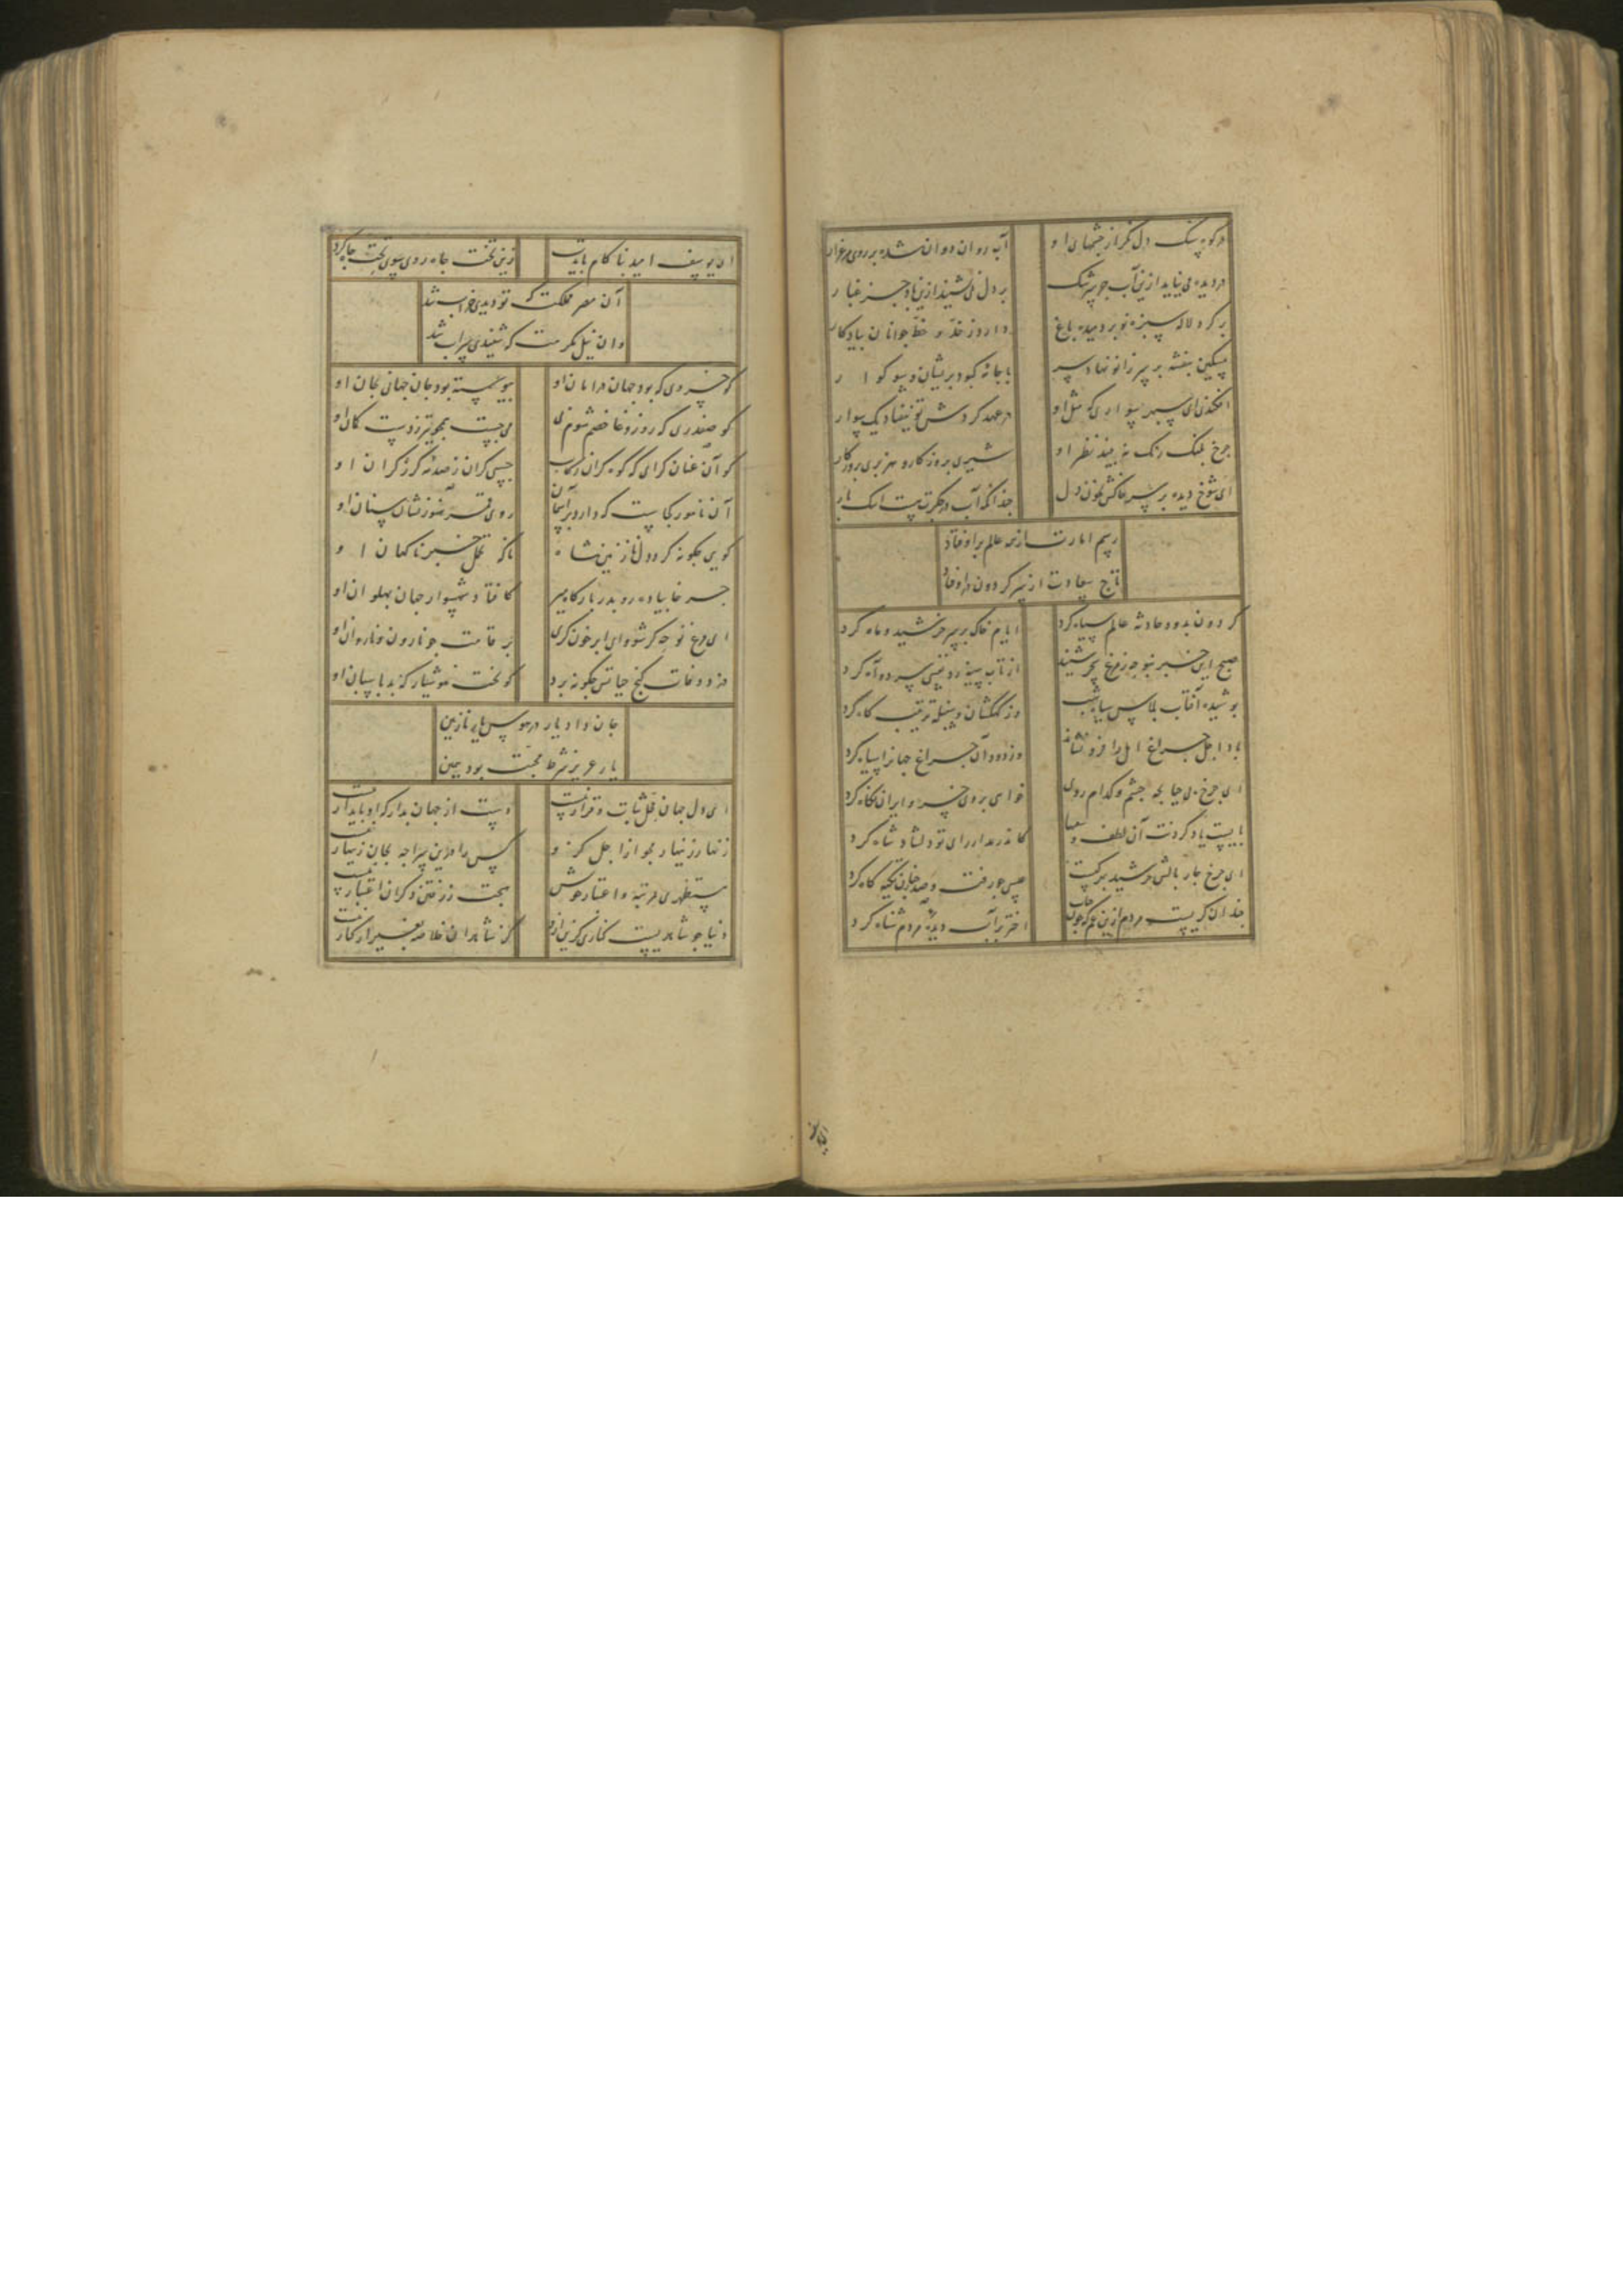 در کوه سنگ دل نگر از چشمهای او آب روان دوان شده بر روی مرغزار
در دیده می نیاید ازین آب جز سرشک بر دل نمی نشیند ازین باد جز غبار
بر گرد لاله سبزه نو بردمیده باغ دارد ز خد و خط جوانان یادگار
مسکین بنفشه بر سر زانو نهاده سر با جامه کبود پریشان و سوکوار
افکندی ای سپهر سواری که مثل او در عهد گردش تو نیفتاد یک سوار
چرخ پلنگ رنگ نه بیند نظیر او شیری بروز کار و هزبری بروزگار
ای شوخ دیده بر سر خاکش بخون دل چندانکه آب در جگرت هست اشک بار
رسم امارت از همه عالم برافتاد
تاج سعادت از سر گردون در اوفتاد
گردون بدود حادثه عالم سیاه کرد ایام خاک بر سر خورشید و ماه کرد
صبح این خبر نبوحه ز مرغ سحر شنید از تاب سینه زد نفس سرد و آه کرد
پوشیده آفتاب پلاس سیاه شب وز کهکشان و سنبله ترتیب کاه کرد
باد اجل چراغ امل را فرو نشاند وز دود آن چراغ جهانرا سیاه کرد
ای چرخ بی حیا بچه چشم و کدام روی خواهی بروی خسرو ایران نگاه کرد
بایست یاد کردنت آن لطف و کاندر مدار رای تو دلشاد شاه کرد
ای چرخ بار بالش خورشید برگرفت عیسی چو رفت و صدر تکیه گاه کرد
چندان گریست مردم ازین غم که چون حباب اختر بر آب دیده مردم شناه کرد
ای یوسف امید بناکام بایدت زین تخت جاه روی سوی تخت چاه کرد
آن مصر مملکت که تو دیدی خراب شد
وان نیل مکرمت که شنیدی سراب شد
کو خسروی که بود جهان در امان او پیوسته بود جان جهانی بجان او
کو صفدری که روز وغا خصم شوم پی می جست همچو تیر ز دست کمان او
کو آن عنان گرای که کوه گران رکاب جستی کران ز صدمه گرز گران او
آن نامور کجاست که دارد بر آسمان روی قمر هنوز نشان سنان او
گویی چگونه گردد دلهای نازنین شاه ناگه تحمل خبر ناگهان او
جسر غا پیاده رو بدر بارگاه میر کافتاد شهسوار جهان پهلوان او
ای مرغ نوحه گر شو و ای ابر خون گری بر قامت چو نارون و نار دان او
دزد وفات گنج حیاتش چگونه برد کو بخت هوشیار که بد پاسبان او
جان داد یار در هوس یار نازنین
یار عزیز شرط محبت بود همین
ای دل جهان محل ثبات و قرار نیست دست از جهان بدار که او پایدار نیست
زنهار زینهار مجو از اجل که او کس را درین سراچه بجان زینهار نیست
مستظهری مرتبه و اعتبار خویش هیچت ز رفتن دگران اعتبار نیست
دنیا چو شاهدیست کناری گزین ازو کز شاهدان خلاصه بغیر از کنار نیست